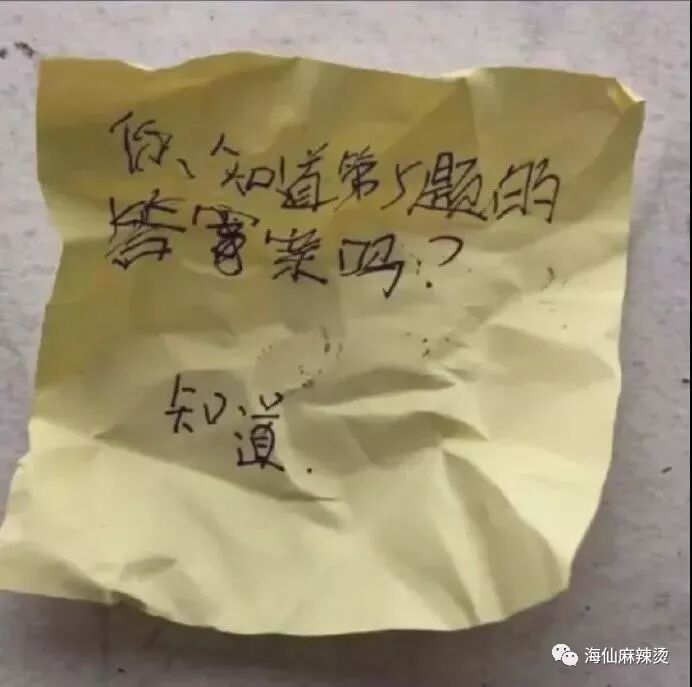 你、知道第5题的
答案吗?
知道.
海仙麻辣烫